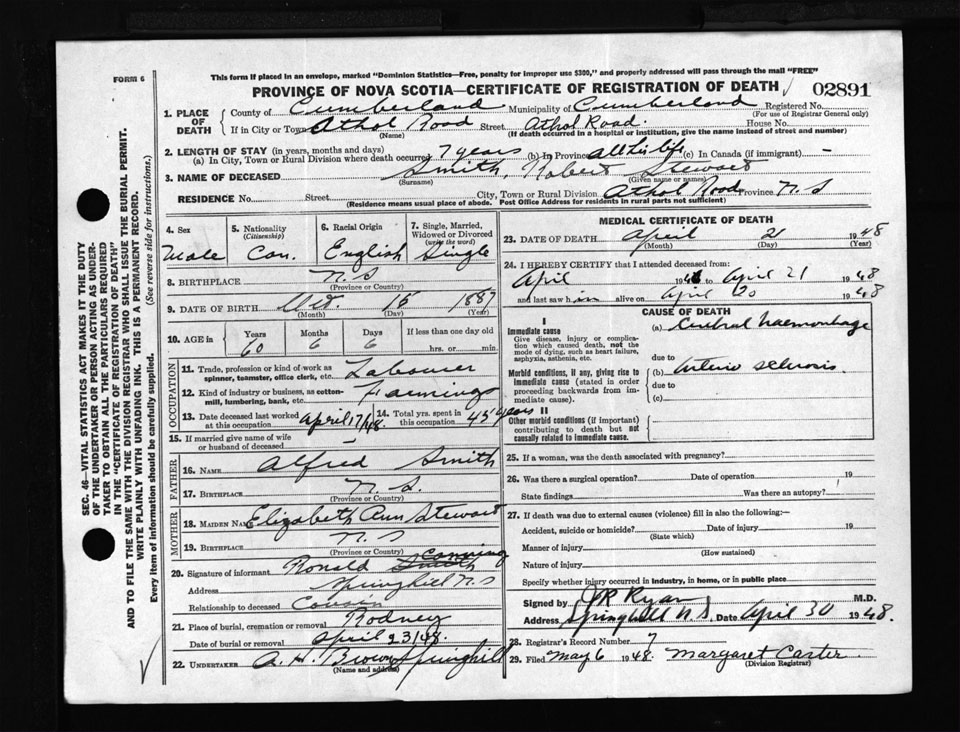 FORM 6
This form if placed in an envelope, marked "Dominion Statistics—Free, penalty for improper use $300," and properly addressed will pass through the mail "FREE"
PROVINCE OF NOVA SCOTIA—CERTIFICATE OF REGISTRATION OF DEATH 02891
1. PLACE OF DEATH
County of Cumberland Municipality of Cumberland Registered No.
(For use of Registrar General only)
If in City or Town Athol Road Street Athol Road. House No.
(Name) (If death occurred in a hospital or institution, give the name instead of street and number)
2. LENGTH OF STAY (in years, months and days)
(a) In City, Town or Rural Division where death occurred 7 years (b) In Province all his life (c) In Canada (if immigrant) —
3. NAME OF DECEASED Smith, Robert Stewart
(Surname) (Given name or names)
RESIDENCE No. Street City, Town or Rural Division Athol Road Province N.S
(Residence means usual place of abode. Post Office Address for residents in rural parts not sufficient)
4. Sex
Male
5. Nationality
(Citizenship)
Can.
6. Racial Origin
English
7. Single, Married, Widowed or Divorced
(write the word)
Single
8. BIRTHPLACE N.S
(Province or Country)
9. DATE OF BIRTH Oct. 15 1887
(Month) (Day) (Year)
10. AGE in
Years Months Days If less than one day old
60 6 6 hrs. or min.
OCCUPATION
11. Trade, profession or kind of work as spinner, teamster, office clerk, etc. Labourer
12. Kind of industry or business, as cotton-mill, lumbering, bank, etc. Farming
13. Date deceased last worked at this occupation April 17/48
14. Total yrs. spent in this occupation 45 years
15. If married give name of wife or husband of deceased —
FATHER
16. NAME Alfred Smith
17. BIRTHPLACE N.S.
(Province or Country)
MOTHER
18. MAIDEN NAME Elizabeth Ann Stewart
19. BIRTHPLACE N.S
(Province or Country)
20. Signature of informant Ronald Smith Canning
Address Springhill N.S
Relationship to deceased Cousin
21. Place of burial, cremation or removal Rodney
Date of burial or removal April 23/48.
22. UNDERTAKER A. H. Brown, Springhill
(Name and address)
MEDICAL CERTIFICATE OF DEATH
23. DATE OF DEATH April 21 1948
(Month) (Day) (Year)
24. I HEREBY CERTIFY that I attended deceased from:
April 1948 to April 21 1948
and last saw him alive on April 20 1948
CAUSE OF DEATH
I
Immediate cause
Give disease, injury or complication which caused death, not the mode of dying, such as heart failure, asphyxia, asthenia, etc.
(a) Cerebral haemorrhage
due to
Morbid conditions, if any, giving rise to immediate cause (stated in order proceeding backwards from immediate cause).
(b) Arterio sclerosis
due to
(c)
II
Other morbid conditions (if important) contributing to death but not causally related to immediate cause.
25. If a woman, was the death associated with pregnancy?
26. Was there a surgical operation? Date of operation 19
State findings Was there an autopsy?
27. If death was due to external causes (violence) fill in also the following:—
Accident, suicide or homicide? Date of injury 19
(State which)
Manner of injury
(How sustained)
Nature of injury
Specify whether injury occurred in industry, in home, or in public place
Signed by J R Ryan M.D.
Address Springhill N.S. Date April 30 1948.
28. Registrar's Record Number 7
29. Filed May 6 1948. Margaret Carter.
(Division Registrar)
SEC. 46—VITAL STATISTICS ACT MAKES IT THE DUTY
OF THE UNDERTAKER OR PERSON ACTING AS UNDER-
TAKER TO OBTAIN ALL THE PARTICULARS REQUIRED
IN THE "CERTIFICATE OF REGISTRATION OF DEATH"
AND TO FILE THE SAME WITH THE DIVISION REGISTRAR WHO SHALL ISSUE THE BURIAL PERMIT.
WRITE PLAINLY WITH UNFADING INK. THIS IS A PERMANENT RECORD.
Every item of information should be carefully supplied. (See reverse side for instructions.)